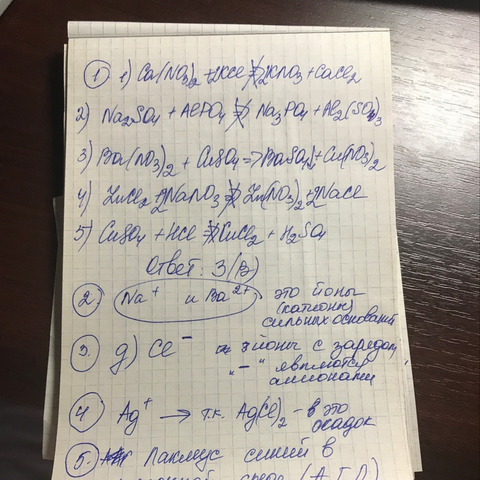 ① 1) Ca(NO₃)₂ + 2KCl ⇏ 2KNO₃ + CaCl₂
2) Na₂SO₄ + AlPO₄ ⇏ Na₃PO₄ + Al₂(SO₄)₃
3) Ba(NO₃)₂ + CuSO₄ => BaSO₄↓ + Cu(NO₃)₂
4) ZnCl₂ + 2NaNO₃ ⇏ Zn(NO₃)₂ + 2NaCl
5) CuSO₄ + HCl ⇏ CuCl₂ + H₂SO₄
Ответ: 3(В)
② Na⁺ и Ba²⁺, это ионы
(катионы)
сильных оснований
③ д) Cl⁻ ионы с зарядом
"–" являются
анионами
④ Ag⁺ → т.к. Ag(Cl)₂ – это
осадок
⑤ Лакмус синий в
среде